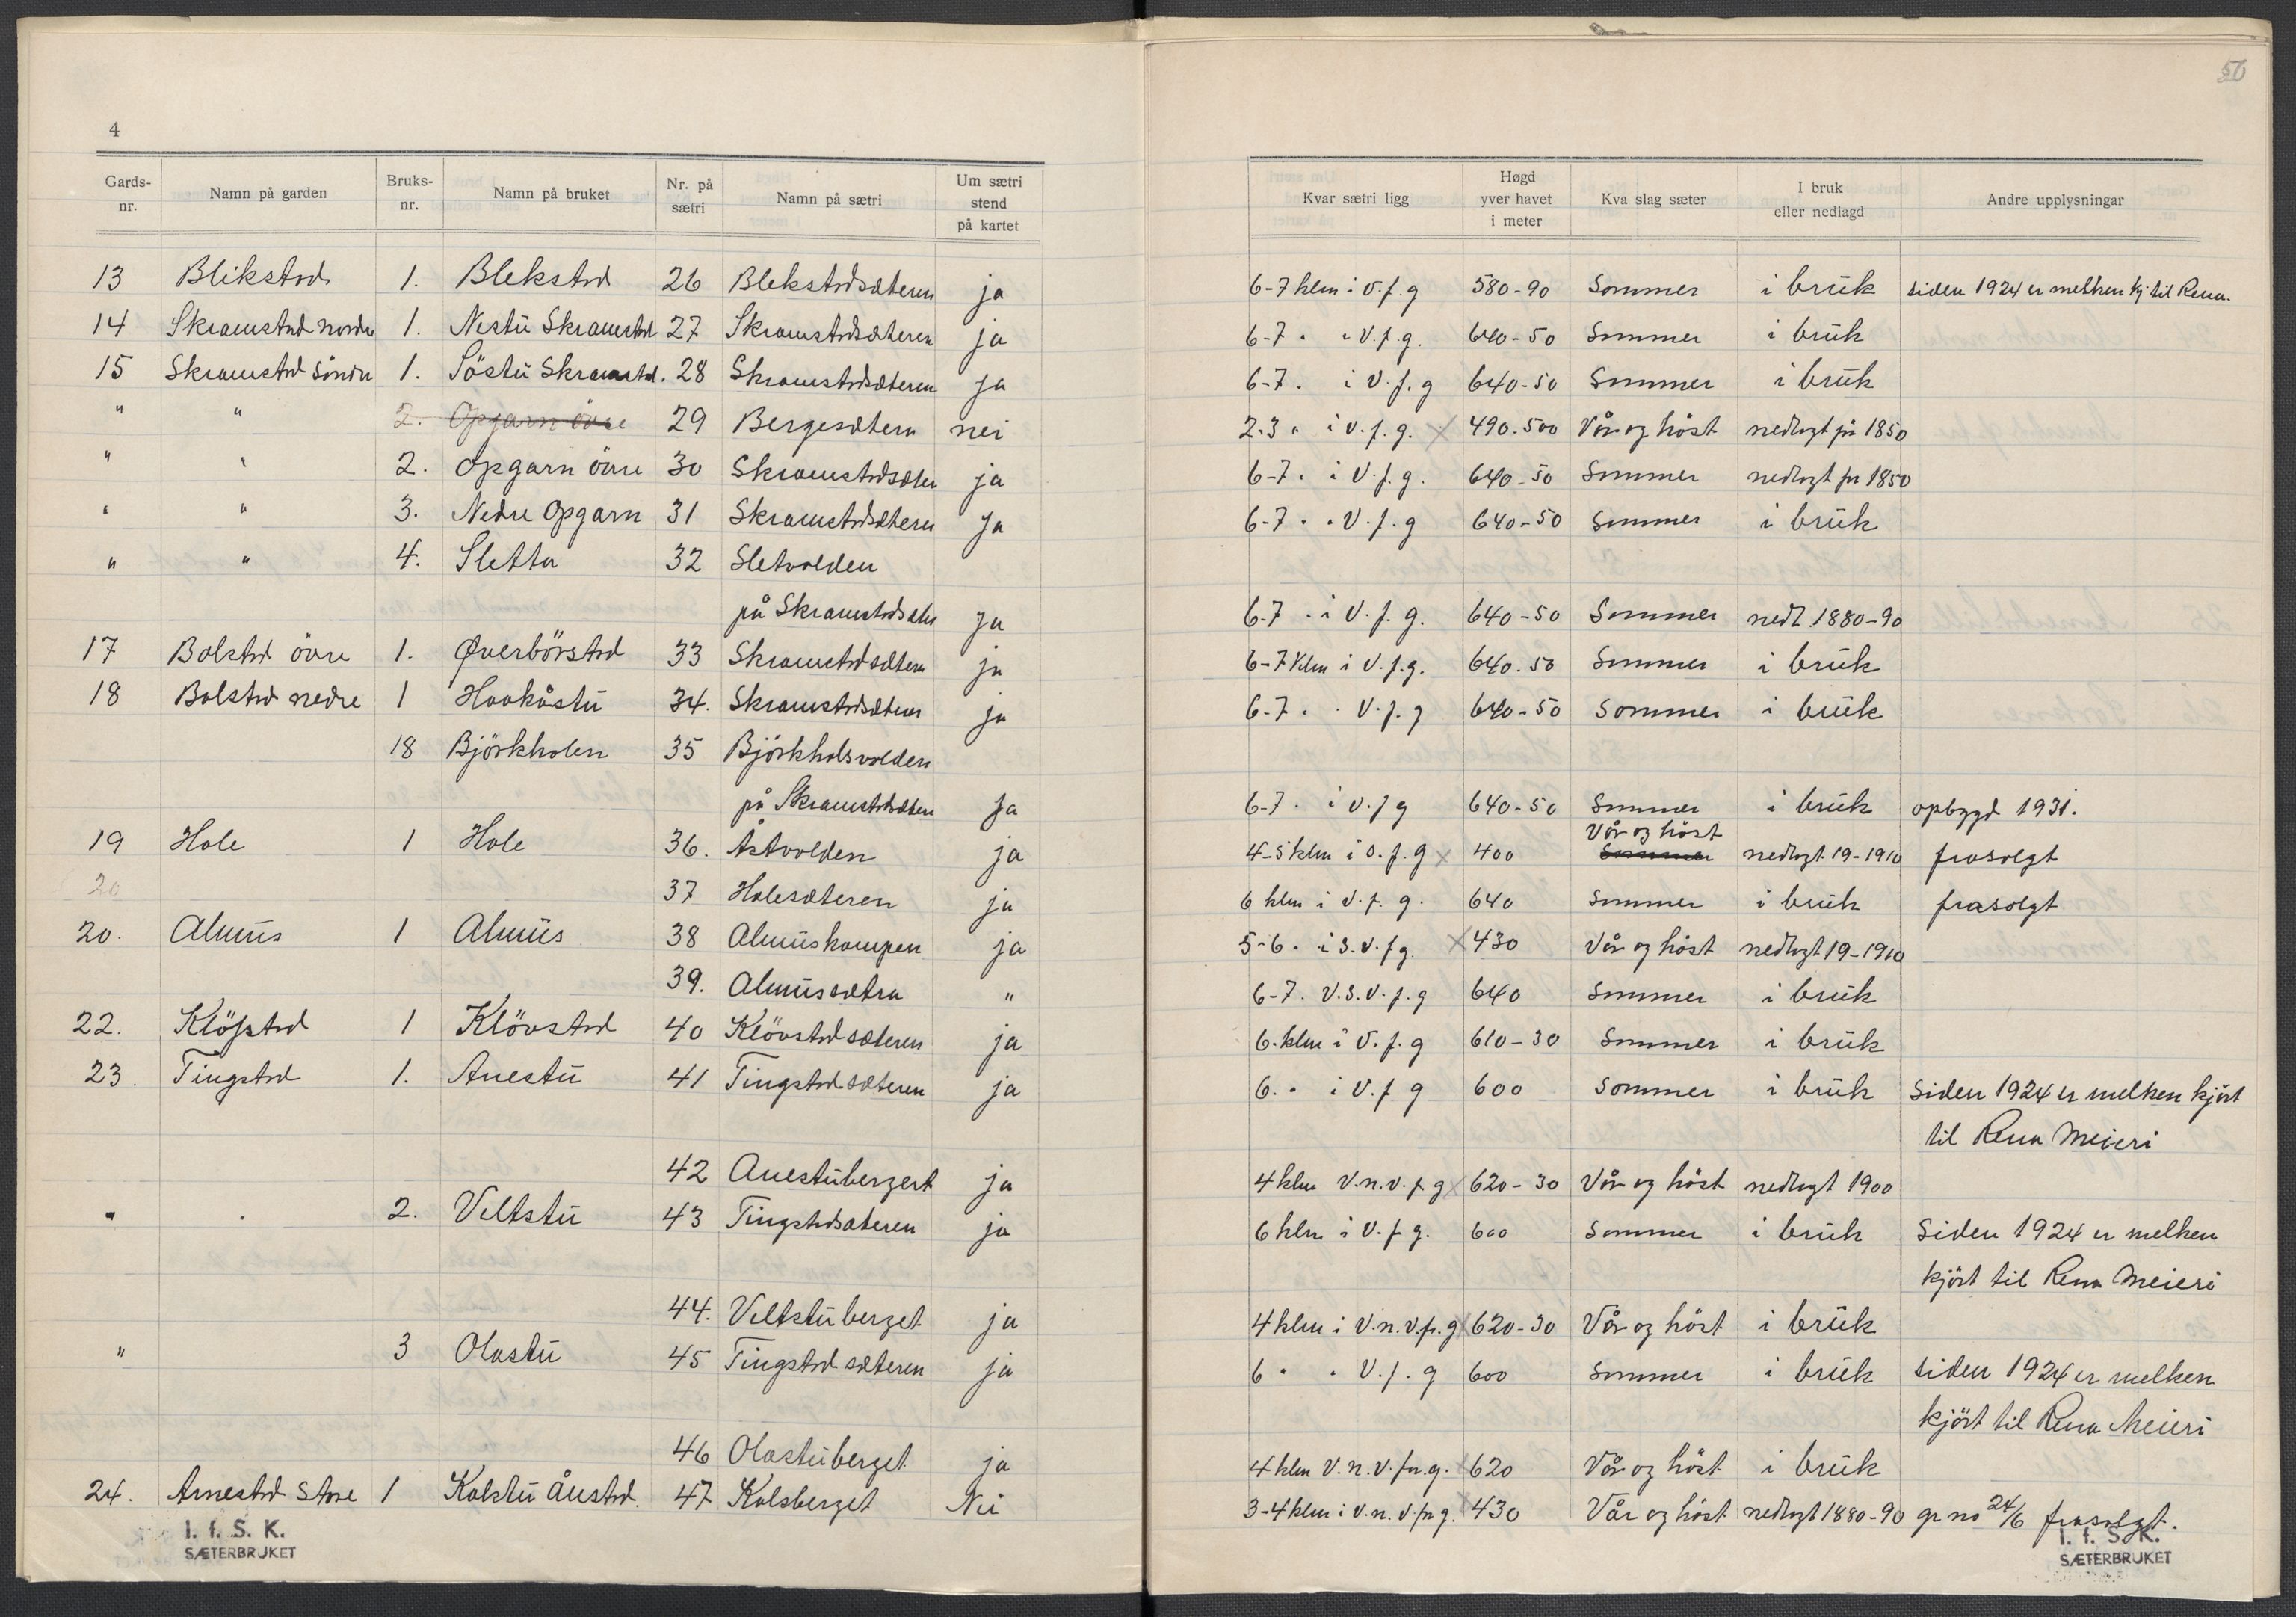 4
Gards-nr. Namn på garden Bruks-nr. Namn på bruket Nr. på sætri Namn på sætri Um sætri stend på kartet
13 Blikstad 1. Blekstad 26 Blekstadsæteren ja
14 Skramstad nordre 1. Nestu Skramstad 27 Skramstadsæteren ja
15 Skramstad söndre 1. Söstu Skramstad. 28 Skramstadsæteren ja
" " 2. Opgarn övre 29 Bergesætern nei
" " 2. Opgarn övre 30 Skramstadsæter ja
" " 3. Nedre Opgarn 31 Skramstadsætern Ja
" " 4. Sletta 32 Sletvolden
på Skramstadsæter Ja
17 Bolstad övre 1. Øverbörstad 33 Skramstadsætern ja
18 Bolstad nedre 1 Haakåstu 34. Skramstadsæteren ja
18 Björkholen 35 Björkholsvolden
på Skramstadsæteren Ja
19 Hole 1 Hole 36. Åstvolden ja
20 37 Holesæteren ja
20. Almus 1 Almus 38 Almuskampen ja
39. Almussætra "
22. Klöfstad 1 Klövstad 40 Klövstadsæteren ja
23. Tingstad 1. Anestu 41 Tingstadsæteren ja
42 Anestubergert ja
" . 2. Veltstu 43 Tingstadsæteren ja
44. Veltstuberget ja
" 3 Olastu 45 Tingstadsæteren ja
46 Olastuberget ja
24. Arnestad Store 1 Kolstu Åustad. 47 Kolsberget Nei
I. f. S. K.
SÆTERBRUKET
56
Kvar sætri ligg Høgd yver havet i meter Kva slag sæter I bruk eller nedlagd Andre upplysningar
6-7 klm i v. f. g 580-90 Sommer i bruk siden 1924 er melken kj til Rena.
6-7 " " v. f. g. 640-50 Sommer i bruk
6-7 . i v. f. g 640-50 Sommer i bruk
2-3 " i v. f. g. x 490-500 Vår og höst nedlagt før 1850
6-7 . i v. f. g. 640-50 Sommer nedlagt før 1850
6-7 " " v. f. g 640-50 Sommer i bruk
6-7 . i v. f. g. 640-50 Sommer nedl. 1880-90
6-7 klm i v. f. g. 640-50 Sommer i bruk
6-7 . . v. f. g 640-50 Sommer i bruk
6-7 . i v. f g 640-50 Sommer i bruk opbygd 1931.
Vår og höst
4-5 klm i o. f. g x 400 Sommer nedlagt 19-1910 frasolgt
6 klm i v. f. g. 640 Sommer i bruk frasolgt
5-6 . i s. v. f g. x 430 Vår og höst nedlagt 19-1910
6-7. v. s. v. f. g 640 Sommer i bruk
6. klm i v. f. g 610-30 Sommer i bruk
6. " i v. f g 600 Sommer i bruk Siden 1924 er melken kjört
til Rena Meieri
4 klm v. n. v. f. g x 620-30 Vår og höst nedlagt 1900
6 klm i v. f g. 600 Sommer i bruk Siden 1924 er melken
kjört til Rena Meieri
4 klm i v. n. v. fr. g x 620-30 Vår og höst i bruk
6 " " v. f. g 600 Sommer i bruk siden 1924 er melken
kjört til Rena Meieri
4 klm v. n. v. fr. g. x 620 Vår og höst i bruk
3-4 klm i v. n. v. fr g. x 430 Vår og höst nedlagt 1880-90 gr no 24/6 frasolgt.
I. f. S. K.
SÆTERBRUKET